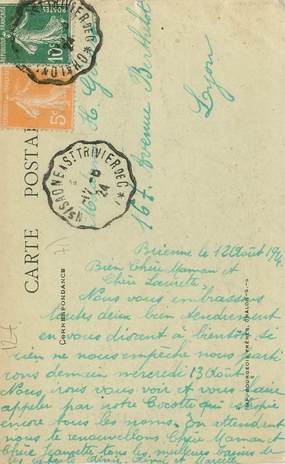 CARTE POSTALE
CORRESPONDANCE
10c
5c
167 Avenue Berthelot
Lyon
Brienne le 12 Août 1924
Bien Chère Maman et
Chère Laurette
Nous vous embrassons
toutes deux bien tendrement
en vous disant à bientôt si
rien ne nous empêche nous parti
rons demain mercredi 13 Août.
Nous irons vous voir et vous faire
appeler par notre Cocotte qui
encore tous les noms. En attendant
nous te renouvellons Chère Maman et
Chère tous les meilleurs baisers de
IMP. BOURGEOIS FRÈRES, CHALON-S-S